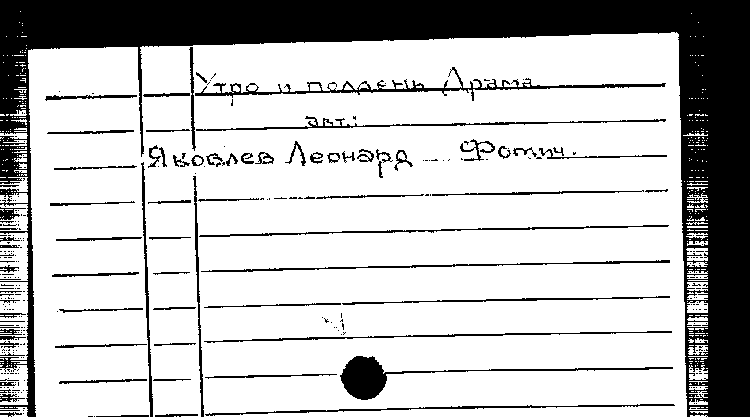 Утро и полдень Драма
авт.:
Яковлев Леонард Фотич.